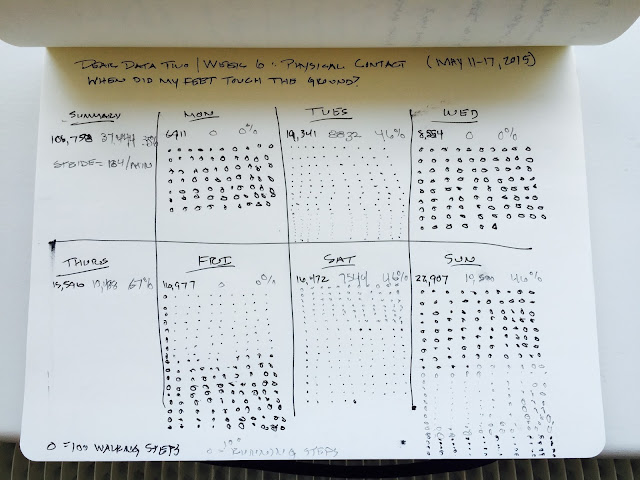 DEAR DATA TWO / WEEK 6: PHYSICAL CONTACT (MAY 11-17, 2015)
WHEN DID MY FEET TOUCH THE GROUND?
SUMMARY
106,758 37,444
STRIDE = 184/MIN
MON
6911 0 0%
TUES
19,341 8832 46%
WED
8,554 0 0%
THURS
15,596 67%
FRI
0 0%
SAT
16,472 7544 46%
SUN
46%
O = 100 WALKING STEPS
O = 100 RUNNING STEPS